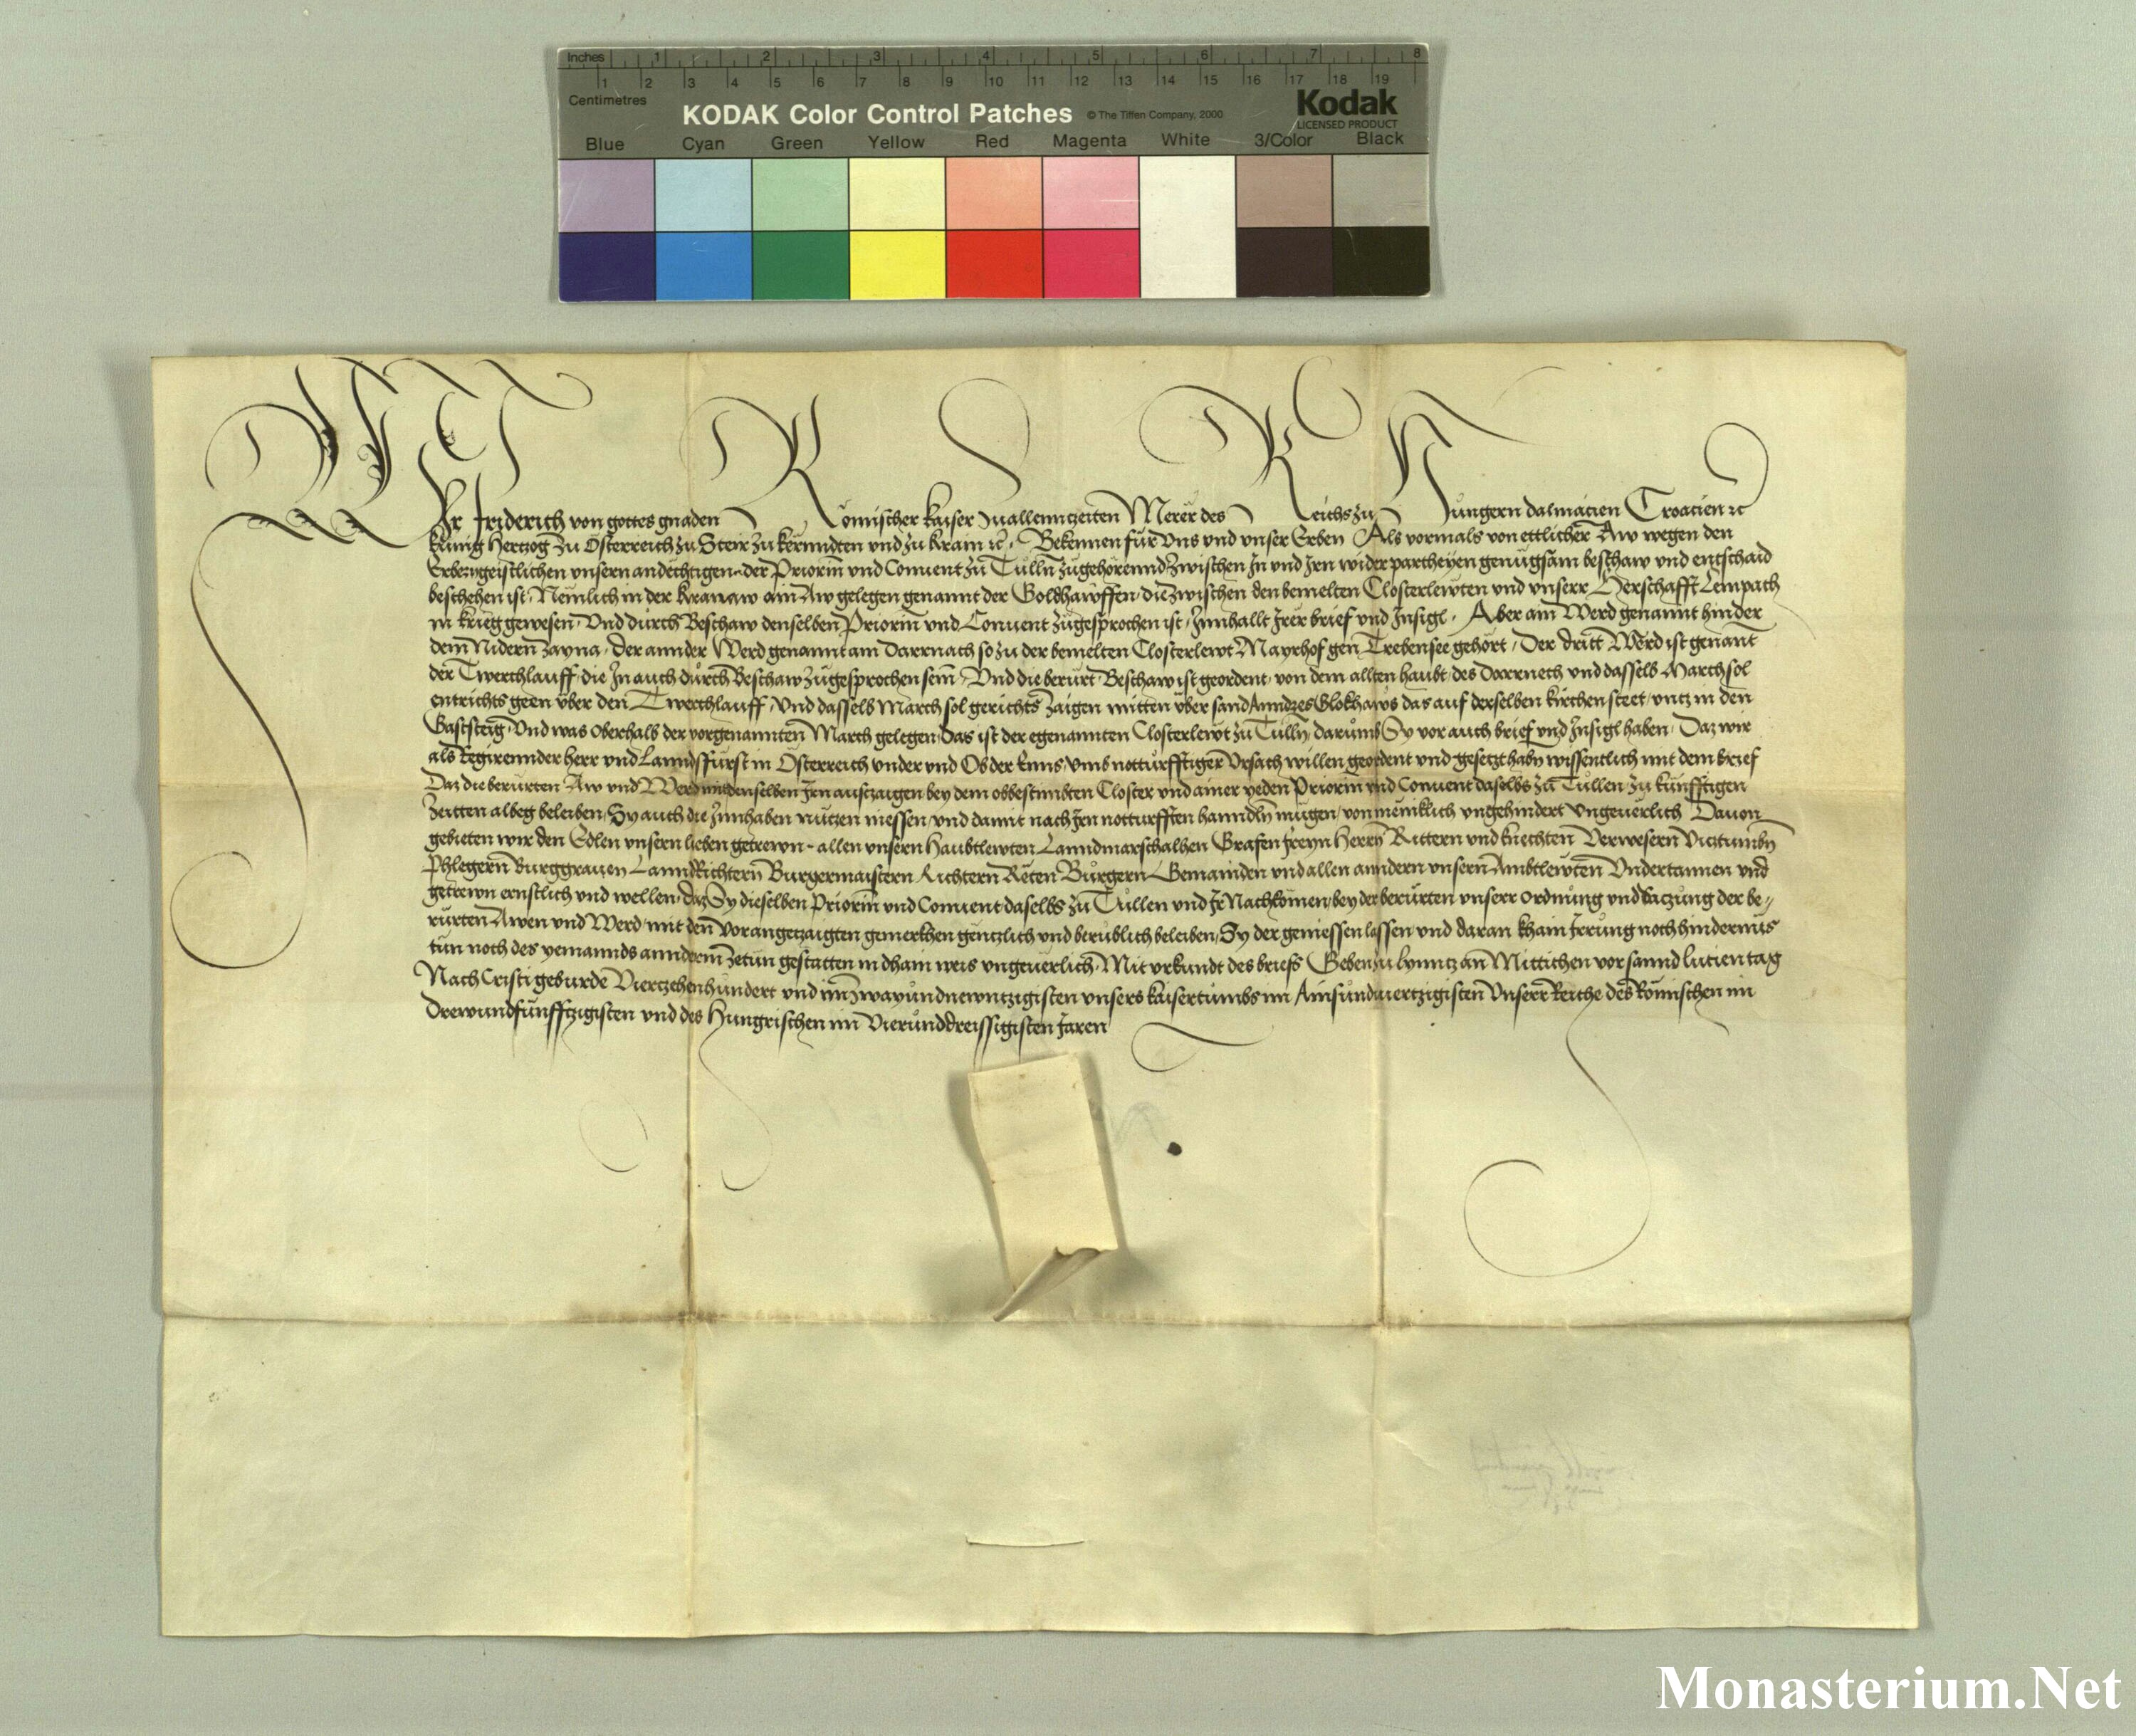 Inches 1 2 3 4 5 6 7 8
1 2 3 4 5 6 7 8 9 10 11 12 13 14 15 16 17 18 19
Centimetres
KODAK Color Control Patches © The Tiffen Company, 2000 Kodak
LICENSED PRODUCT
Blue Cyan Green Yellow Red Magenta White 3/Color Black
Wir Friderich von gottes gnaden Römischer Kaiser zuallenntzeiten Merer des Reichs zu Hungern dalmacien Croacien ꝛc
kunig Hertzog zu Österreich zu Steir zu kernndten und zu krain ꝛc. Bekennen für uns und unser Erben Als vormals von ettlicher Aw wegen den
geistlichen unsern andechtigen der Priorin und Convent zu Tulln zugehörennd zwischen In und Irn widerpartheyen genugsam beschaw und entschaid
beschehen ist, Nemlich in der kranaw ain Aw gelegen genannt der Goldhawffen, die zwischen den bemelten Closterlewten und unserr Herschafft Lempach
in krieg gewesen, Und durch Beschaw denselben Priorin und Convent zugesprochen ist, Innhallt Irer brief und Insigl. Aber ain Werd genannt hinder
dem Nidern Zayna, der annder Werd genannt am Darrnach so zu der bemelten Closterlewt Mayrhof gen Trebensee gehört, Der dritt Werd ist genant
der Twerchlauff, die In auch durch Beschaw zugesprochen sein, Und die berurt Beschaw ist geordent, von dem allten haubt, des Darrnech und dasselb March sol
entrichts geen über den Twerchlauff, Und dasselb March sol gerichts zaigen mitten über sand Anndres Glokhaws das auf derselben kirchen steet, untz in den
Gaststeig, Und was oberhalb der vorgenannten March gelegen, Das ist der egenannten Closterlewt zu Tulln, darumb Sy vor auch brief und Insigl haben, Daz wir
als Regirennder herr und Lanndsfürst in Österreich under und Ob der Enns, umb notturfftiger Ursach willen geordent und gesetzt haben wissentlich mit dem brief
Daz die berürten Aw und Werd mit denselben Irn auszaigen bey dem obbestimbten Closter und ainer yeden Priorin und Convent daselbs zu Tullen zu künfftigen
Zeitten albeg beleiben, Sy auch die Innhaben nutzen niessen, und damit nach Irn notturfften hanndln mugen, von meniklich ungehindert Ungeuerlich Dauon
gebieten wir den Edlen unsern lieben getrewn allen unsern Haubtlewten Lanndmarschalhen Grafen freyn Herrn Rittern und knechten Verwesern Vicitumbn
Phlegern Burggrauen LanndRichtern Burgermaistern Richtern Reten Burgern Gemainden und allen anndern unsern Ambtlewten Undertannen und
getrewn ernstlich und wellen, daz Sy dieselben Priorin und Convent daselbs zu Tullen und Ir Nachkomen, bey der berürten unserr ordnung und saczung der be-
rürten Awen und Werd, mit den vorangetzaigten gemerkhen gentzlich und berublich beleiben, Sy der geniessen lassen und daran khain Irrung noch hindernüs
tün noch des yemannds annderm zetün gestatten in dhain weis ungeuerlich, Mit urkundt des briefs Geben zu lynntz an Mittichen vor sannd lucien tag
Nach Cristi geburde Viertzehenhundert und im zwayundnewntzigisten unsers kaisertumbs im Ainsundviertzigisten Unserr Reiche des Römischen im
Drewundfünfftzigisten und des Hungrischen im Vierunddreissigisten Jaren
Monasterium.Net